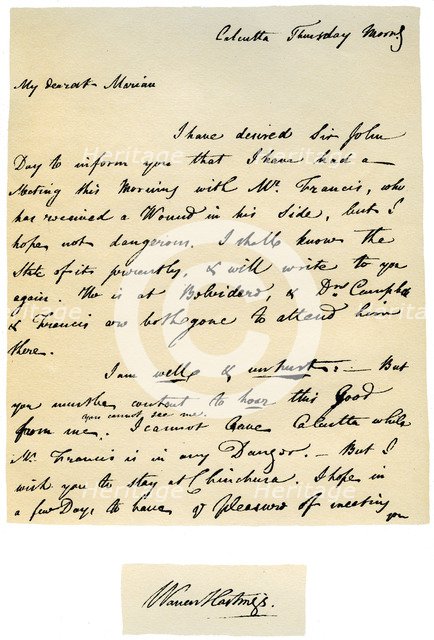 Calcutta Thursday Morng
My dearest Marian
I have desired Sir John
Day to inform you that I have had a
Meeting this Morning with Mr. Francis, who
has received a Wound in his Side, but I
hope not dangerous. I shall know the
State of it presently, & will write to you
again. He is at Belvidere, & Drs Campbell
& Francis are both gone to attend him
there.
I am well & unhurt. — But
you must be content to hear this Good
from me. you cannot see me. I cannot leave Calcutta while
Mr. Francis is in any Danger. — But I
wish you to stay at Chinchura. I hope in
a few Days to have ye pleasure of meeting
you
Warren Hastings.
Heritage
Heritage
Heritage
Heritage
Images
Images